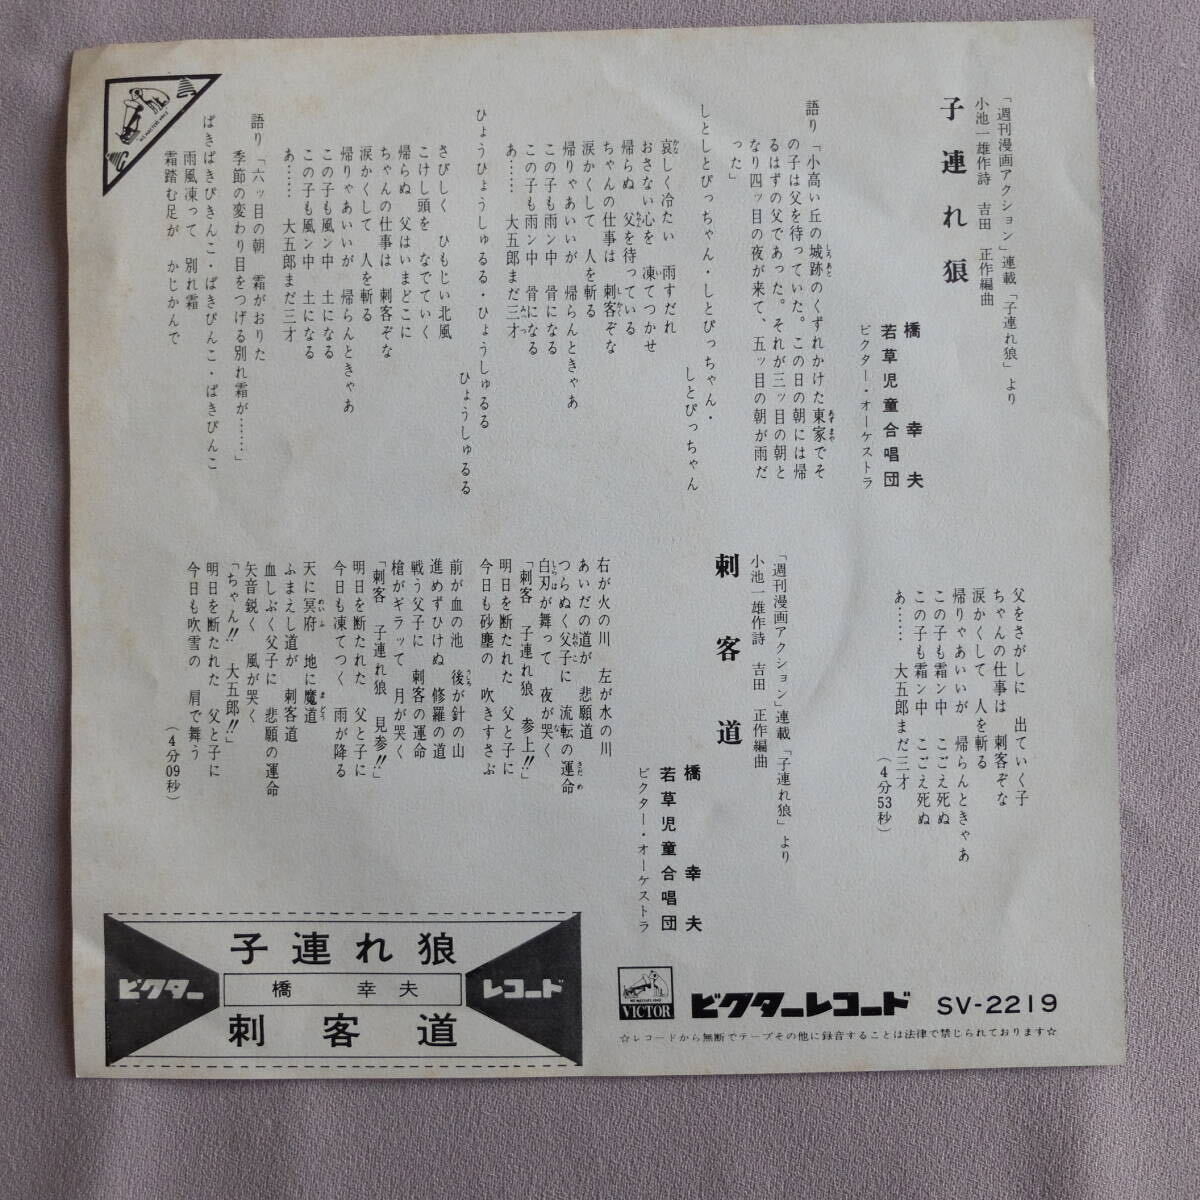 「週刊漫画アクション」連載「子連れ狼」より
小池一雄作詩 吉田 正作編曲
子連れ狼
橋 幸夫
若草児童合唱団
ビクター・オーケストラ
語り「小高い丘の城跡のくずれかけた東家でそ
の子は父を待っていた。この日の朝には帰
るはずの父であった。それが三ッ目の朝と
なり四ッ目の夜が来て、五ッ目の朝が雨だ
った」
しとしとぴっちゃん・しとぴっちゃん・
しとぴっちゃん
哀しく冷たい 雨すだれ
おさない心を 凍てつかせ
帰らぬ 父を待っている
ちゃんの仕事は 刺客ぞな
涙かくして 人を斬る
帰りゃあいいが 帰らんときゃあ
この子も雨ン中 骨になる
この子も雨ン中 骨になる
あ…… 大五郎まだ三才
ひょうひょうしゅるる・ひょうしゅるる
ひょうしゅるる
さびしく ひもじい北風
こけし頭を なでていく
帰らぬ 父はいまどこに
ちゃんの仕事は 刺客ぞな
涙かくして 人を斬る
帰りゃあいいが 帰らんときゃあ
この子も風ン中 土になる
この子も風ン中 土になる
あ…… 大五郎まだ三才
語り「六ッ目の朝 霜がおりた
季節の変わり目をつげる別れ霜が……」
ぱきぱきぴきんこ・ぱきぴんこ・ぱきぴんこ
雨風凍って 別れ霜
霜踏む足が かじかんで
父をさがしに 出ていく子
ちゃんの仕事は 刺客ぞな
涙かくして 人を斬る
帰りゃあいいが 帰らんときゃあ
この子も霜ン中 こごえ死ぬ
この子も霜ン中 こごえ死ぬ
あ…… 大五郎まだ三才
（4分53秒）
「週刊漫画アクション」連載「子連れ狼」より
小池一雄作詩 吉田 正作編曲
刺客道
橋 幸夫
若草児童合唱団
ビクター・オーケストラ
右が火の川 左が水の川
あいだの道が 悲願道
つらぬく父子に 流転の運命
白刃が舞って 夜が哭く
「刺客 子連れ狼 参上!!」
明日を断たれた 父と子に
今日も砂塵の 吹きすさぶ
前が血の池 後が針の山
進めずひけぬ 修羅の道
戦う父子に 刺客の運命
槍がギラッて 月が哭く
「刺客 子連れ狼 見参!!」
明日を断たれた 父と子に
今日も凍てつく 雨が降る
天に冥府 地に魔道
ふまえし道が 刺客道
血しぶく父子に 悲願の運命
矢音鋭く 風が哭く
「ちゃん!! 大五郎!!」
明日を断たれた 父と子に
今日も吹雪の 肩で舞う
（4分09秒）
子連れ狼
ビクター 橋 幸夫 レコード
刺客道
VICTOR ビクターレコード SV-2219
☆レコードから無断でテープその他に録音することは法律で禁じられております☆